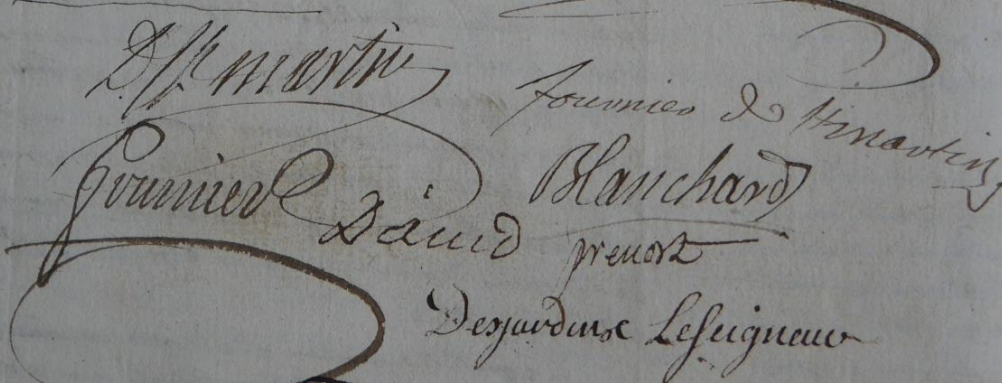 D. St martin
fournier de St martin
fournier
Blanchard
David
prevost
Desjardins Leseigneur